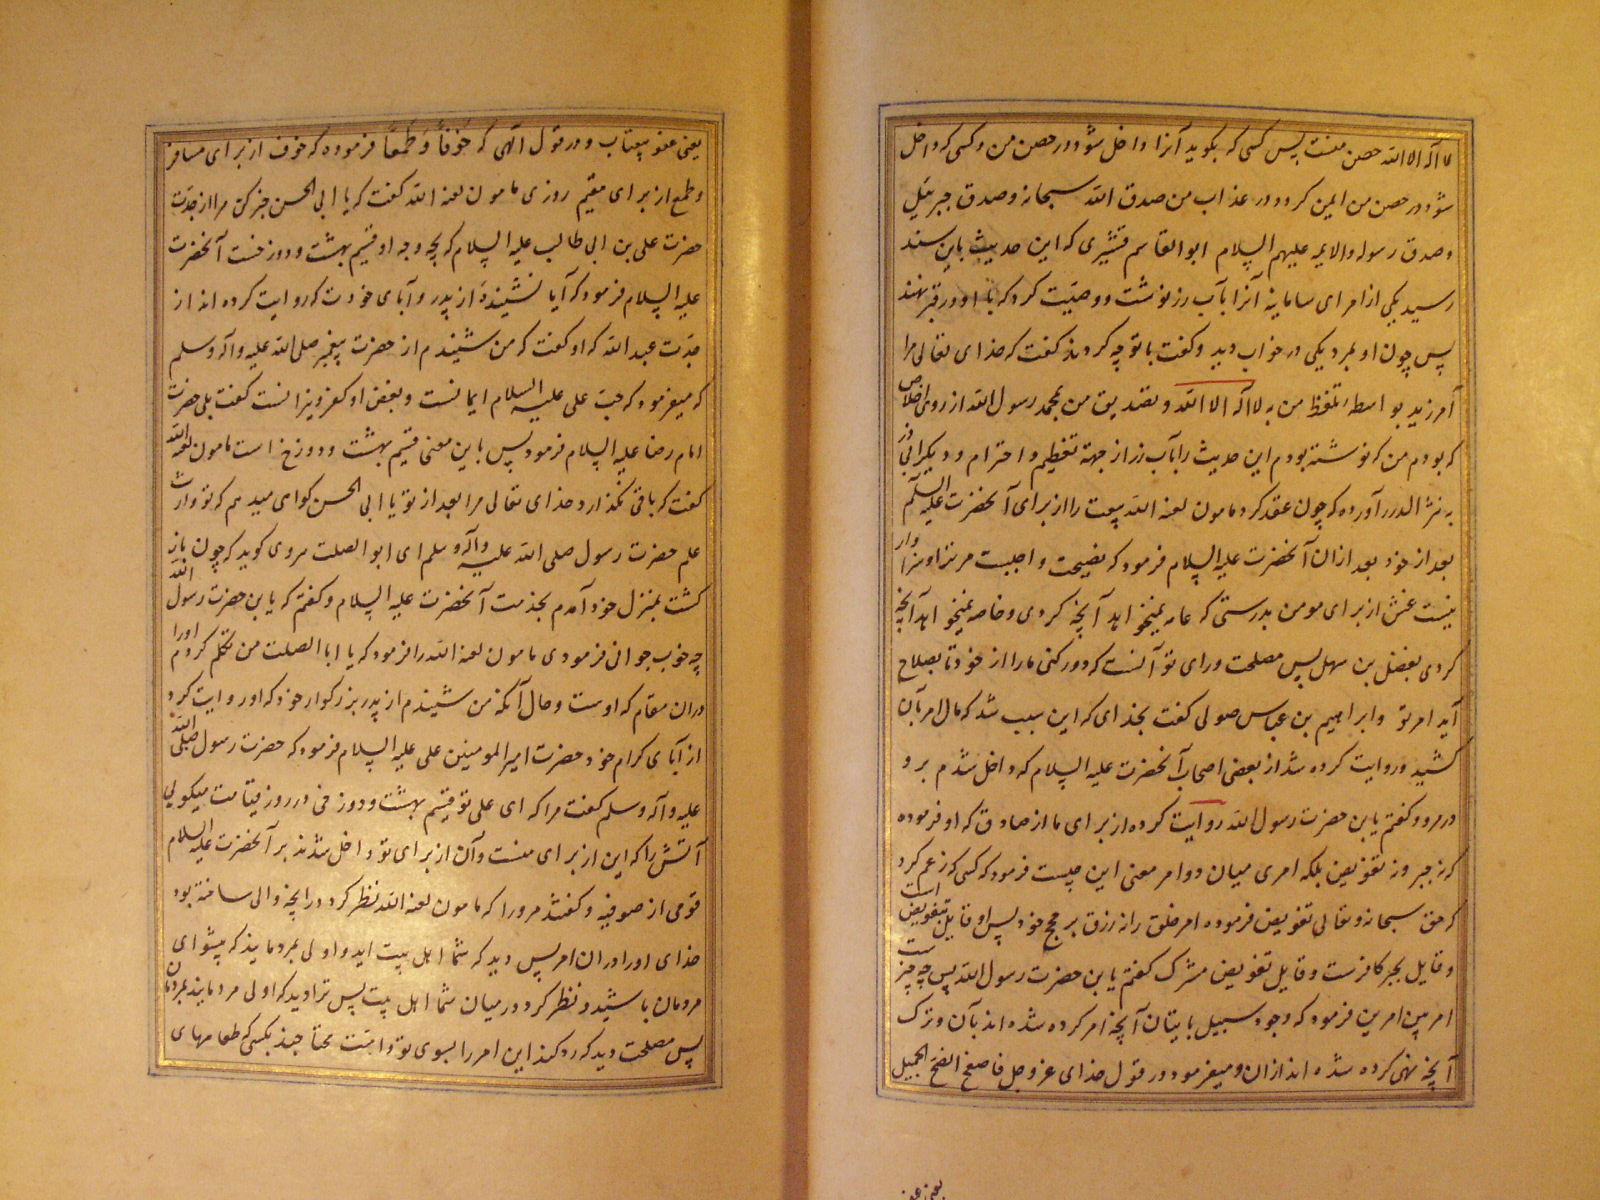 لا اله الا الله حصن منست پس کسی که بکوید آنرا داخل شود در حصن من و کسی که داخل
شود در حصن من ایمن کردد در عذاب من صدق الله سبحانه وصدق جبرئیل
وصدق رسوله والایمه علیهم السلام ابوالقاسم قشیری که این حدیث باین سند
رسید یکی از امرای سامانیه آنرا بآب زر نوشت و وصیت کرد که با او در قبر نهند
پس چون او بمرد یکی در خواب دید و کفت با تو چه کردند کفت که خدای تعالی مرا
آمرزید بواسطه تلفظ من به لا اله الا الله و تصدیق من بمحمد رسول الله از روی اخلاص
که بودم من که نوشته بودم این حدیث را بآب زر از جهة تعظیم و احترام و دیکر
به نثر الدرر آورده که چون عقد کرد مامون لعنه الله بیعت را از برای آنحضرت علیه السلام
بعد از خود بعد ازان آنحضرت علیه السلام فرمود که نصیحت واجبست مر ترا و سزاوار
نیست غش از برای مومن بدرستی که عامه نمیخواهد آنچه کردی و خاصه نمیخواهد آنچه
کردی بفضل بن سهل پس مصلحت ورای تو آنست که دور کنی مارا از خود تا بصلاح
آید امر تو وابراهیم بن عباس صولی کفت بخدای که این سبب شد که مال امر بآن
کشید و روایت کرده شد از بعضی اصحاب آنحضرت علیه السلام که داخل شدم برو
در مرو و کفتم یابن حضرت رسول الله روایت کرده از برای ما از صادق که او فرموده
که نه جبر و نه تفویض بلکه امری میان دو امر معنی این چیست فرمود که کسی که زعم کرد
که حق سبحانه وتعالی تفویض فرموده امر خلق را نه رزق بر حجج خود پس او قایل بتفویض است
و قایل بجبر کافرست و قایل تفویض مشرک کفتم یابن حضرت رسول الله پس چه چیز ست
امر بین امرین فرمود که وجود سبیل باتیان آنچه امر کرده شده اند بآن و ترک
آنچه نهی کرده شده اند ازان و میفرمود در قول خدای عز وجل فاصفح الصفح الجمیل
یعنی عفو
یعنی عفو بیعتاب و در قول الهی که خَوفاً وَ طَمَعاً فرموده که خوف از برای مسافر
و طمع از برای مقیم روزی مامون لعنه الله کفت که یا ابی الحسن خبر کن مرا از جدت
حضرت علی بن ابی طالب علیه السلام که بچه وجه او قسیم بهشت و دوزخست آنحضرت
علیه السلام فرمود که آیا نشنیدهٔ از پدر و آبای خودت که روایت کرده اند از
جدت عبد الله که او کفت که من شنیدم از حضرت پیغمبر صلی الله علیه واله وسلم
که میفرمود که حب علی علیه السلام ایمانست و بغض او کفر و نیز انست کفت بلی حضرت
امام رضا علیه السلام فرمود پس باین معنی قسیم بهشت و دوزخ است مامون لعنه الله
کفت که باقی نکذارد خدای تعالی مرا بعد از تو یا ابی الحسن کواهی میدهم که تو وارث
علم حضرت رسول صلی الله علیه واله وسلم ای ابو الصلت هروی کوید که چون باز
کشت بمنزل خود آمدم بخدمت آنحضرت علیه السلام و کفتم که یابن حضرت رسول الله
چه خوب جوابی فرمودی مامون لعنه الله را فرمود که یا ابا الصلت من تکلم کردم اورا
دران مقام که اوست و حال آنکه من شنیدم از پدر بزرکوار خود که او روایت کرد
از آبای کرام خود حضرت امیر المومنین علی علیه السلام فرمود که حضرت رسول صلی الله
علیه واله وسلم کفت مرا که ای علی تو قسیم بهشت و دوزخی در روز قیامت میکویی
آتش را که این از برای منست و آن از برای تو داخل شدند بر آنحضرت علیه السلام
قومی از صوفیه و کفتند مر ورا که مامون لعنه الله نظر کرد در انچه والی ساخته بود
خدای اورا دران امر پس دید که شما اهل بیت اید و اولی بمردمانید که پیشوای
مردمان باشید و نظر کرد در میان شما اهل بیت پس ترا دید که اولی مردمانید بمردمان
پس مصلحت دید که رد کند این امر را بسوی تو و امت محتاجند بکسی که طعامهای